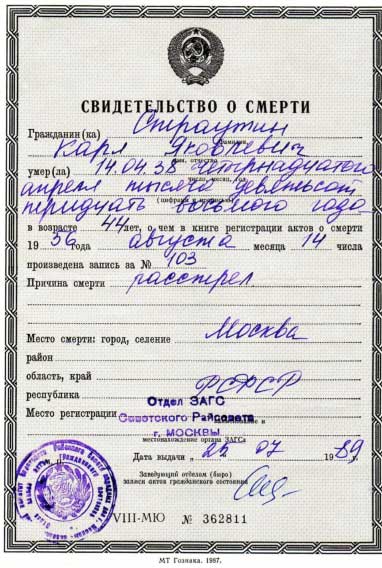 СВИДЕТЕЛЬСТВО О СМЕРТИ
Гражданин(ка) Страутин
фамилия
Карл Яковлевич
имя, отчество
умер(ла) 14.04.38 четырнадцатого
число, месяц, год
апреля тысяча девятьсот
(цифрами и прописью)
тридцать восьмого года
в возрасте 44 лет, о чем в книге регистрации актов о смерти
19 56 года августа месяца 14 числа
произведена запись за № 103
Причина смерти расстрел
Место смерти: город, селение Москва
район
область, край
республика РСФСР
Отдел ЗАГС
Место регистрации Советского Райсовета
г. МОСКВЫ
местонахождение органа ЗАГСа
Дата выдачи „ 07 19 89
Заведующий отделом (бюро)
записи актов гражданского состояния
VIII-МЮ № 362811
МТ Гознака. 1987.